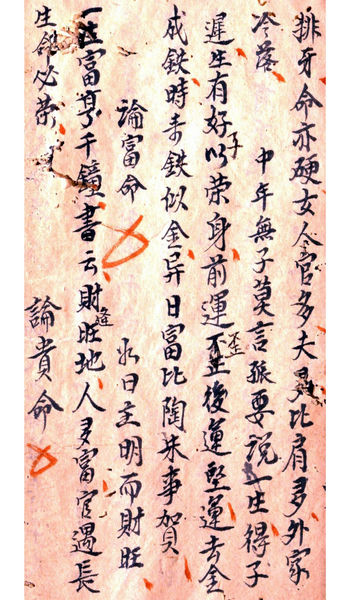 排牙命亦硬女人官多夫多比肩多外家
冷落
中年無子莫言孤要說一生得子
遲生有好子以荣身前運歪後運堅運去金
成鉄時来鉄似金异日富比陶朱事賀
論富命
出日主明而財旺
一生富享千鐘書云財旺逢地人多富官遇長
生命必荣
論貴命